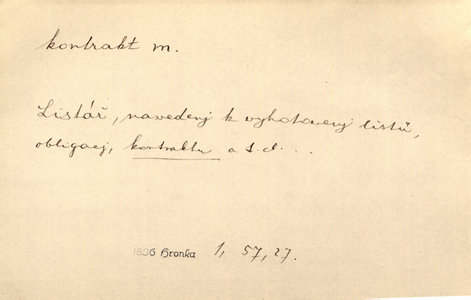 kontrakt m.
Listář, navedenj k vyhotovenj listů,
obligacj, kontraktu a t. d. ...
1836 Hronka 1, 57, 27.